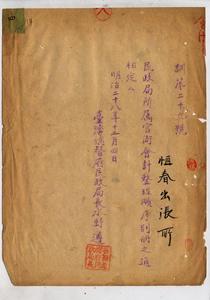 訓第二十九號
恒春出張所
民政局所属官衙會計整理順序別冊之通
相定ム
明治二十八年十二月四日
臺湾總督府民政局長水野遵